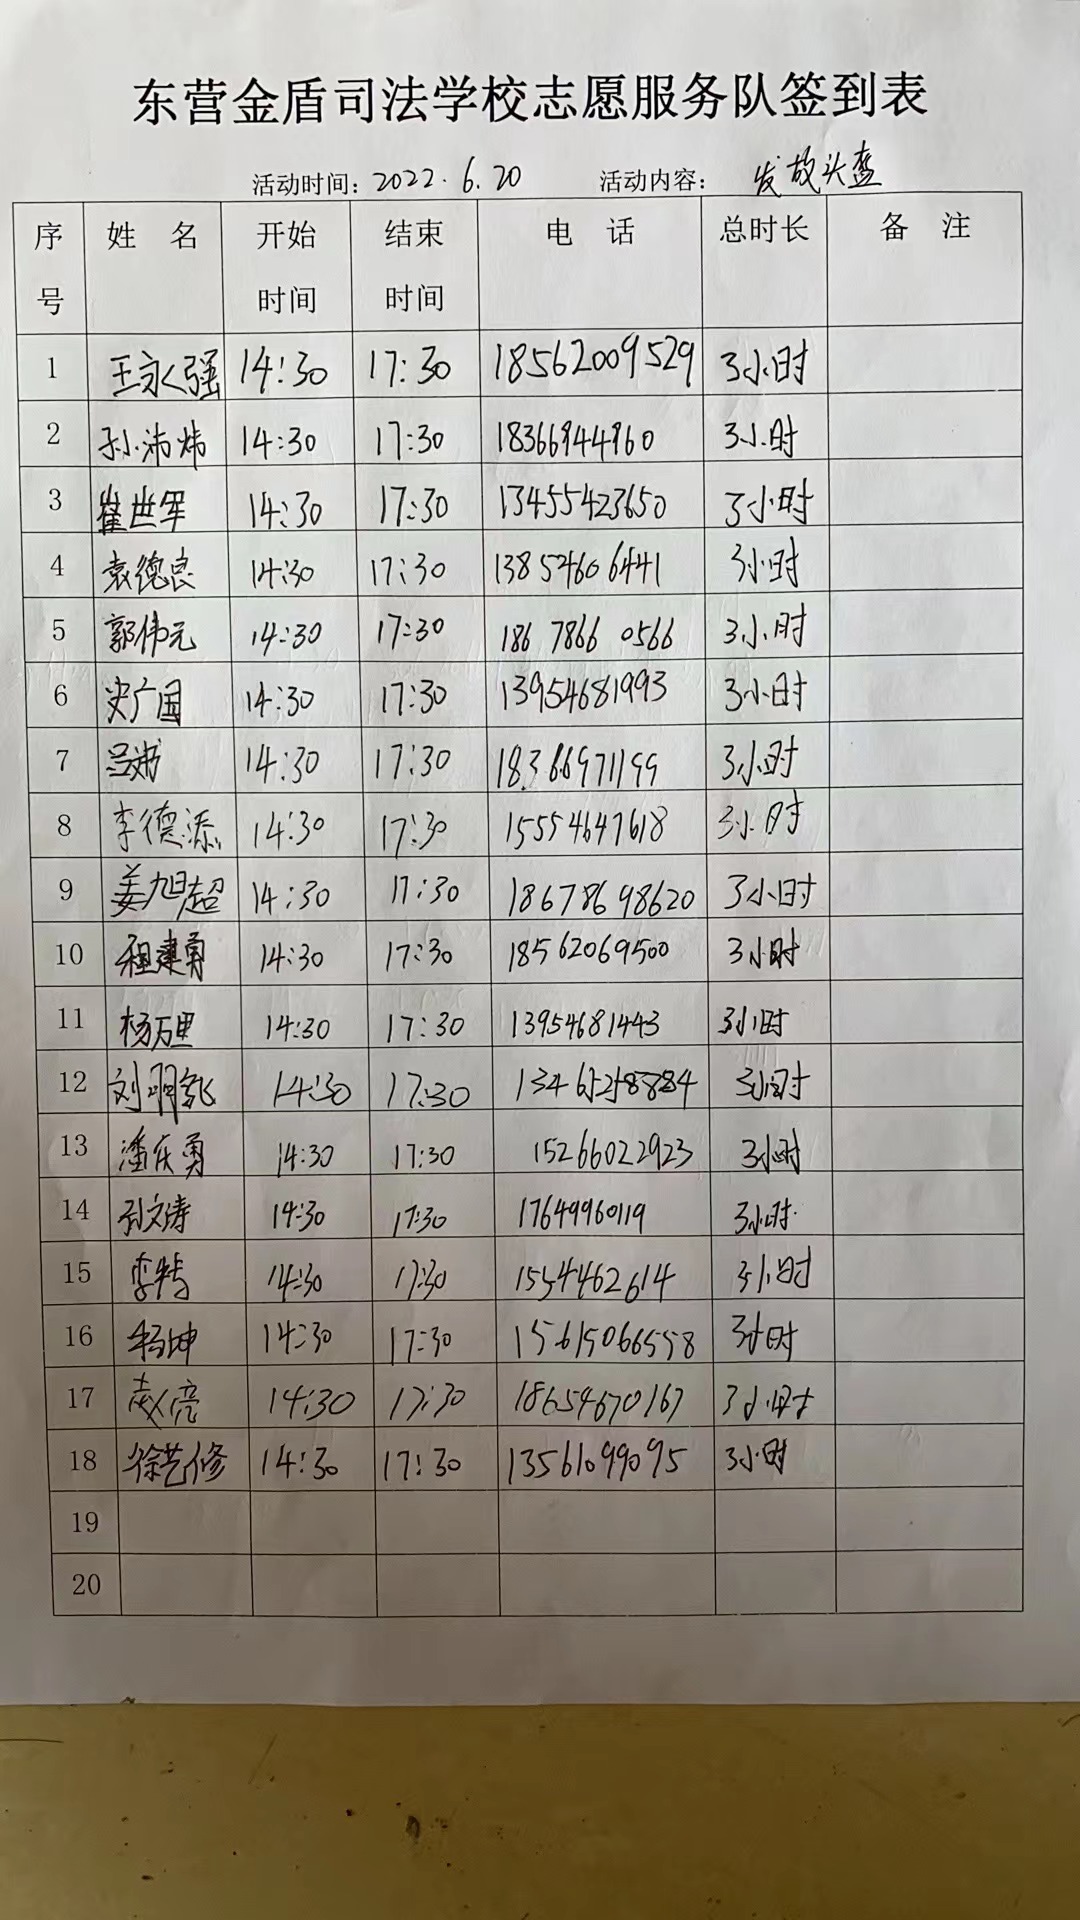 东营金盾司法学校志愿服务队签到表
活动时间：2022.6.20 活动内容： 发放头盔
序号 姓 名 开始时间 结束时间 电 话 总时长 备 注
1 王永强 14:30 17:30 18562009529 3小时
2 孙沛炜 14:30 17:30 18366944960 3小时
3 崔世军 14:30 17:30 13455423650 3小时
4 袁德良 14:30 17:30 13854606441 3小时
5 郭伟元 14:30 17:30 186 7866 0566 3小时
6 史广国 14:30 17:30 13954681993 3小时
7 14:30 17:30 18366971199 3小时
8 李德添 14:30 17:30 15554647618 3小时
9 姜旭超 14:30 17:30 18678698620 3小时
10 程建勇 14:30 17:30 18562069500 3小时
11 杨万里 14:30 17:30 13954681443 3小时
12 14:30 17:30 3小时
13 潘庆勇 14:30 17:30 15266022923 3小时
14 孙文涛 14:30 17:30 17649960119 3小时
15 李特 14:30 17:30 1554462614 3小时
16 杨坤 14:30 17:30 15615066558 3小时
17 赵亮 14:30 17:30 18654670167 3小时
18 徐艺修 14:30 17:30 13561099095 3小时
19
20